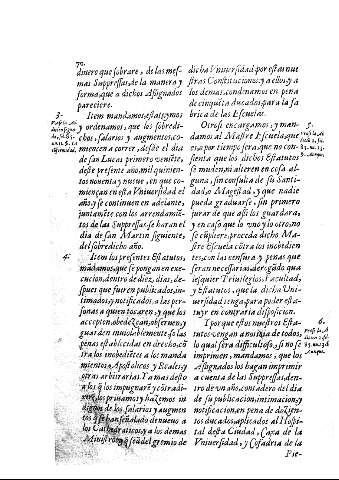 70.
dinero que sobrare, de las mes-
mas Suppressas, de la manera y
forma, que a dichos Assignados
pareciere.
3.
Item mandamos, estatuymos
y ordenamos, que los sobredi-
chos, salarios y augmentos, co-
miencen a correr, desde el dia
de san Lucas primero veniête,
deste presente año, mil quinien-
tos noventa y nueve, en que co-
miençan en esta Vniuersidad el
año, y se continuen en adelante,
juntamête con los arrendamiê-
tos de las Suppressas, se haran el
dia de san Martin siguiente,
del sobredicho año.
4.
Item los presentes Estatutos
mãdamos, que se pongan en exe-
cucion, dentro de diez, dias, de-
spues que fueren publicados, in-
timados, y notificados, a las per-
sonas a quien tocaren, y que los
accepten, obedezcan, obseruen, y
guarden inuiolablemente, so las
penas establecidas en drecho, cõ-
tra los inobediêtes a los manda
mientos Apostolicos y Reales, y
otras arbitrarias. Y a mas desto
a los q los impugnarê y côtradi-
xerê, los priuamos y hazemos in
dignos de los salarios y augmen
tos q se han señalado de nueuo a
los Cathedraticos, y a los demas
Ministros, y q seã del gremio de
dicha Vniuersidad, por estas nue
stras Constituciones, y a ellos, y a
los demas, condenamos en pena
de cinquêta ducados, para la fa
brica de las Escuelas.
5.
Otrosi encargamos, y man-
damos al Mastre Escuela, que
es o por tiempo sera, que no con-
sienta que los dichos Estatutos
se muden, ni alteren en cosa al-
guna, sin consulta de su Santi-
dad, o Magestad, y que nadie
pueda graduarse, sin primero
jurar de que assi los guardara,
y en caso que lo vno, y lo otro, no
se cũpliere, proceda dicho Ma-
stre Escuela contra los inobedien
tes, con las censuras y penas que
seran necessarias, derogãdo qua
lesquier Priuilegios, Facultad,
y Estatutos, que la dicha Vni-
uersidad tenga, para poder esta-
tuyr en contraria disposicion.
6.
Y porque estos nuestros Esta-
tutos vengan a noticia de todos,
lo qual sera difficultoso, si no se
imprimen, mandamos, que los
Assignados los hagan imprimir
a cuenta de las Suppressas, den-
tro de vn año, contadero del dia
de su publicacion, intimacion, y
notificacion, en pena de dozien-
tos ducados, aplicados al Hospi-
tal desta Ciudad, Capa de la
Vniuersidad, y Cofadria de la
Pie-